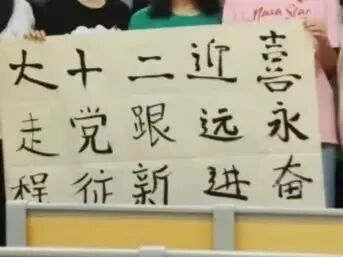 喜迎二十大
永远跟党走
奋进新征程
Star